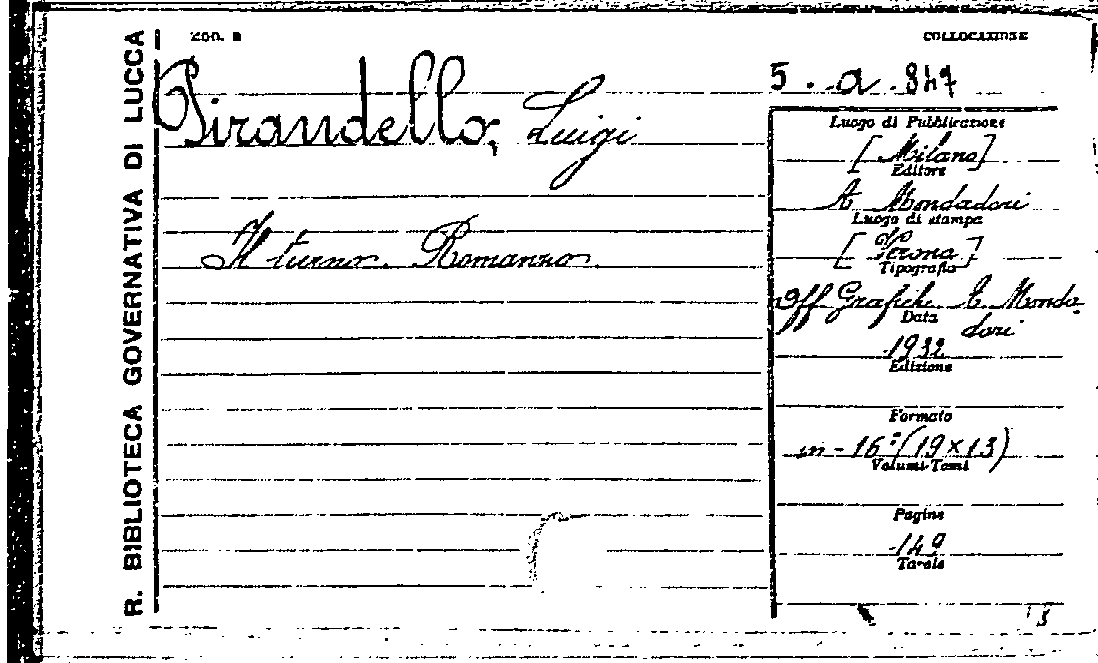 R. BIBLIOTECA GOVERNATIVA DI LUCCA
MOD. B
COLLOCAZIONE
5. a. 847
Pirandello, Luigi
Il turno. Romanzo.
Luogo di Pubblicazione
[Milano]
Editore
A. Mondadori
Luogo di stampa
[Verona]
Tipografia
Off. Grafiche A. Monda-
dori
Data
1932
Edizione
Formato
in-16° (19×13)
Volumi-Tomi
Pagine
149
Tavole